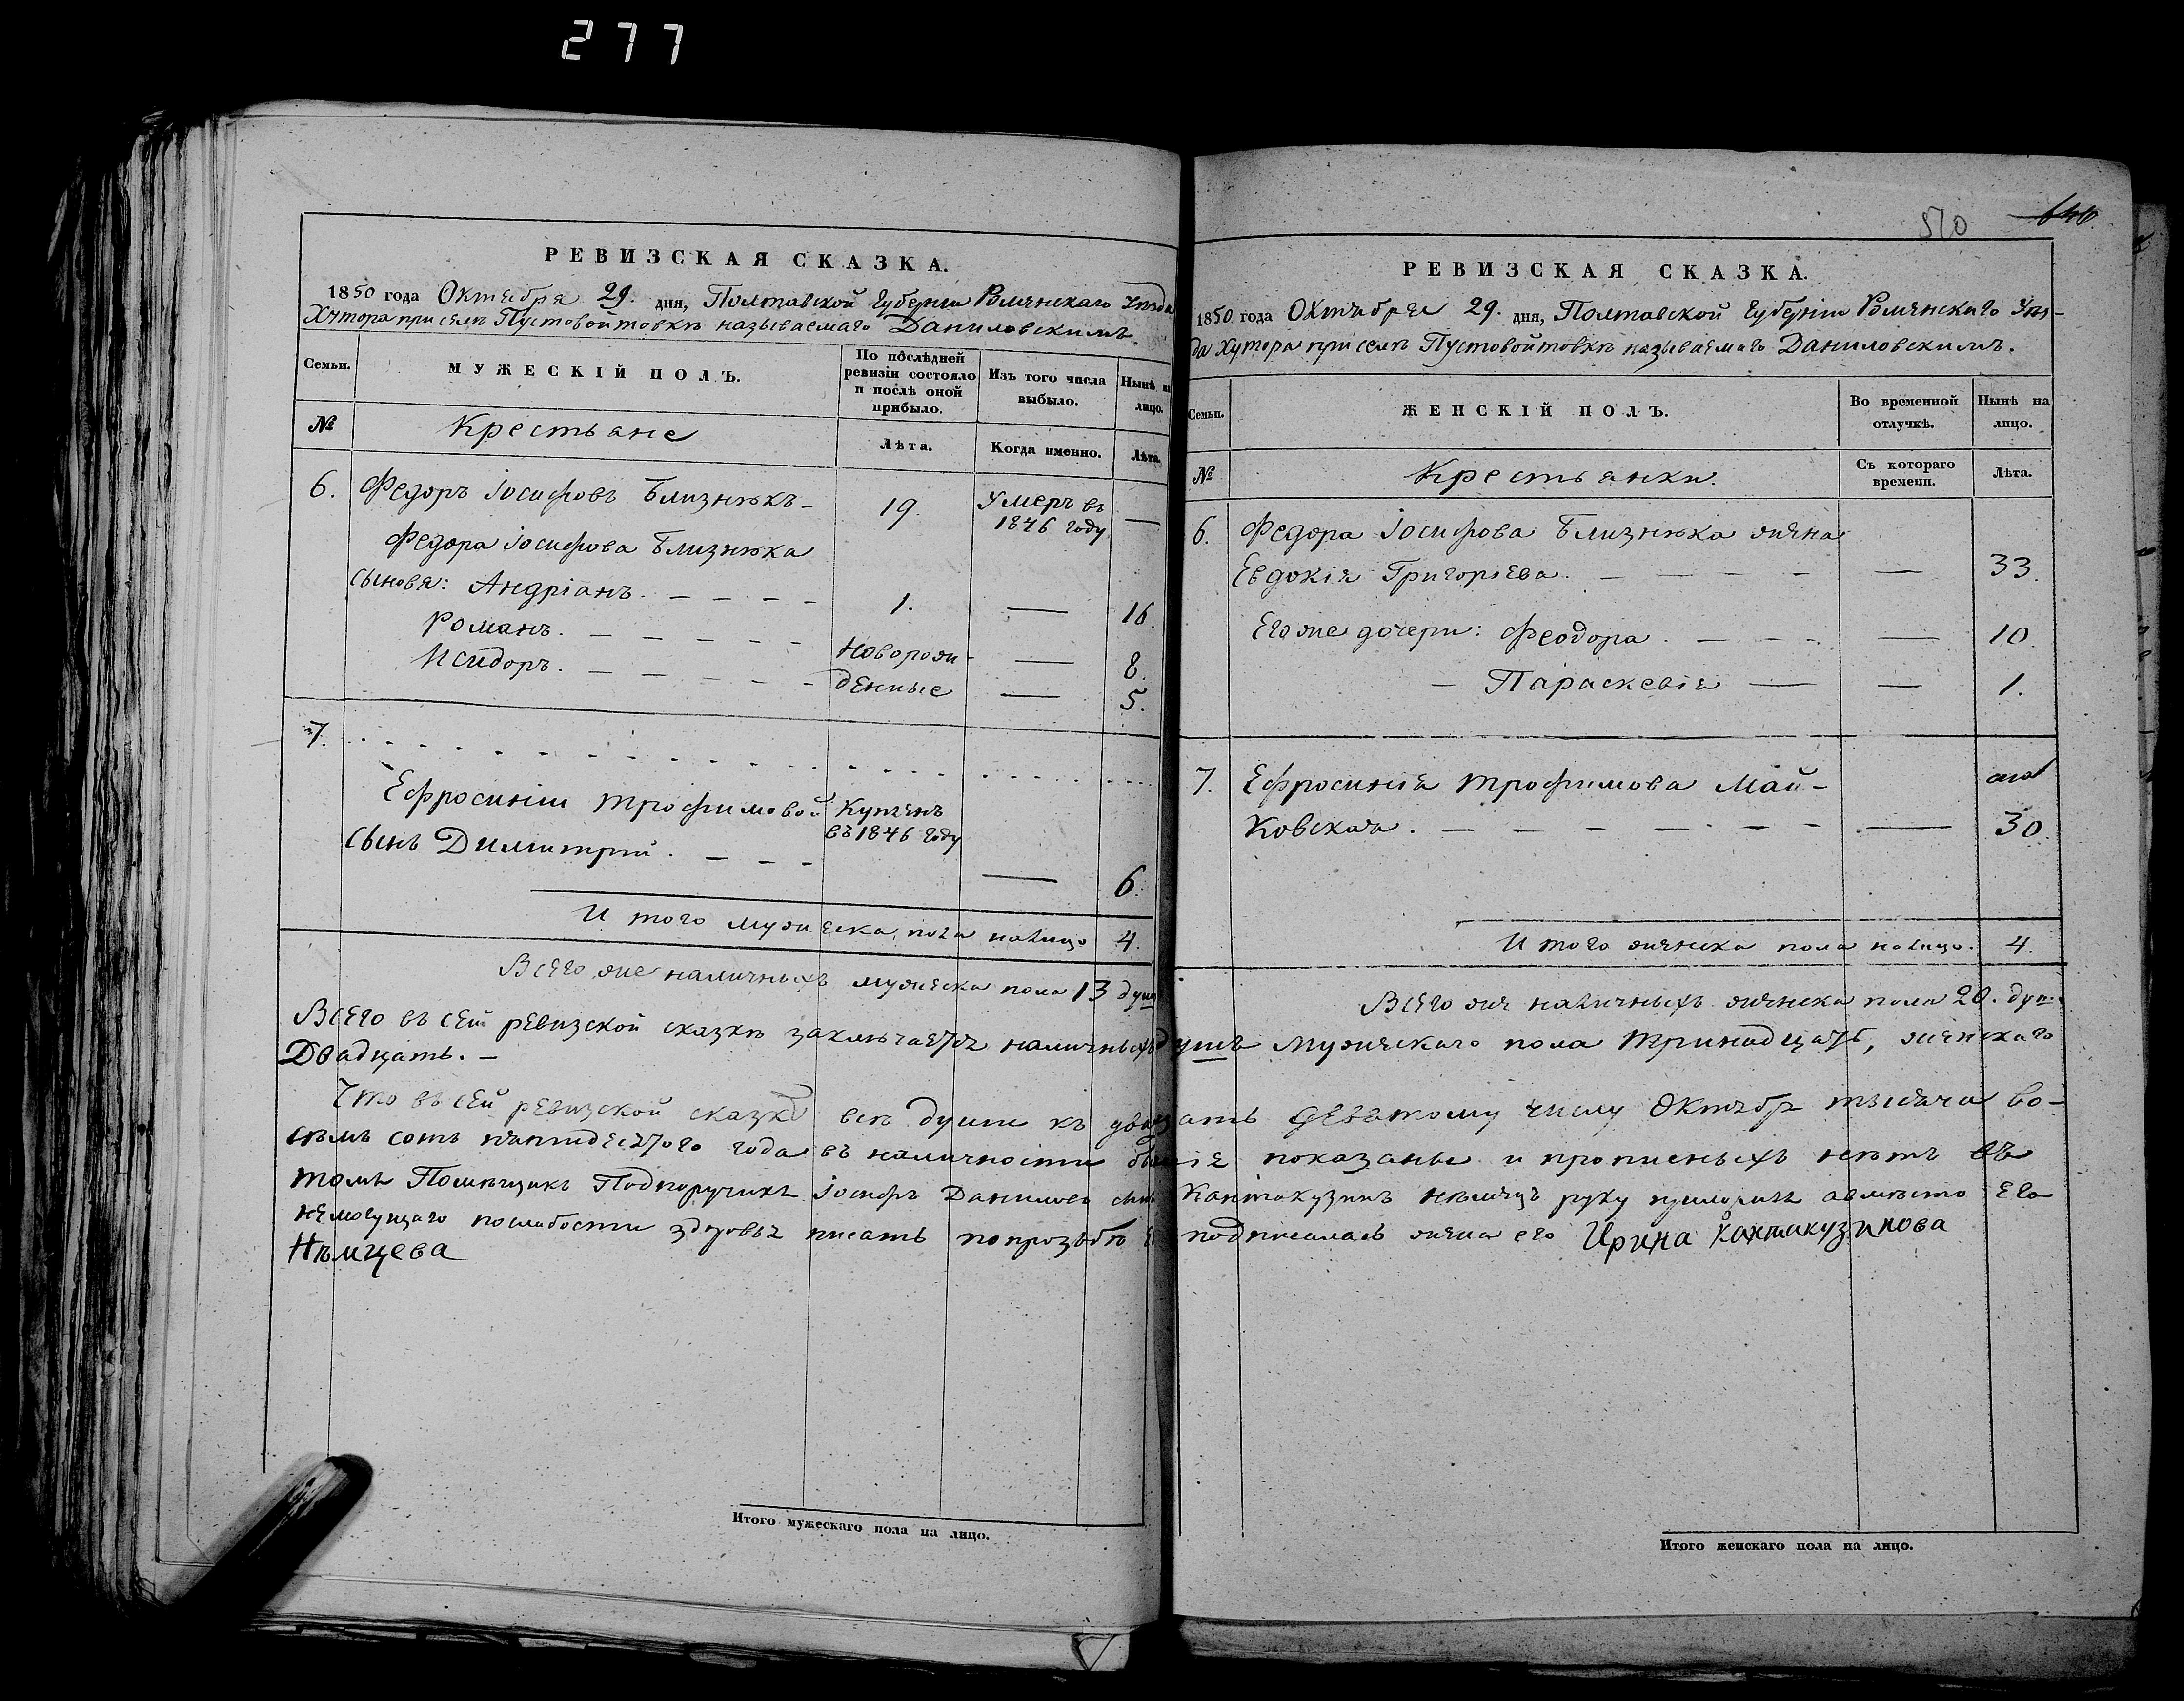 277
РЕВИЗСКАЯ СКАЗКА.
1850 года Октября 29. дня, Полтавской Губерніи Роменскаго Уѣзда
Хутора при селѣ Пустовойтовкѣ называемаго Даниловскимъ.
Семьи.
МУЖЕСКІЙ ПОЛЪ.
По послѣдней ревизіи состояло и послѣ оной прибыло.
Изъ того числа выбыло.
Нынѣ на лицо.
№
Крестьане
Лѣта.
Когда именно.
Лѣта.
6. Федоръ Іосифовъ Близнюкъ - 19. Умеръ въ 1846 году —
Федора Іосифова Близнюка
сыновя: Андріанъ. - - - - 1. — 16.
Романъ. - - - - - Новорож- — 8.
Исидоръ. - - - - - денные — 5.
7.
Ефросиніи Трофимовой Купленъ
сынъ Димитрій. - - - въ 1846 году — 6.
И того мужеска пола налицо 4.
Всего же наличныхъ мужеска пола 13 душ
510
РЕВИЗСКАЯ СКАЗКА.
1850 года Октября 29. дня, Полтавской Губерніи Роменскаго Уѣз-
да Хутора при селѣ Пустовойтовкѣ называемаго Даниловскимъ.
Семьи.
ЖЕНСКІЙ ПОЛЪ.
Во временной отлучкѣ.
Нынѣ на лицо.
№
Крестьянки.
Съ котораго времени.
Лѣта.
6. Федора Іосифова Близнюка жена
Евдокія Григорьева. - - - - — 33.
Его же дочери: Феодора. - - - — 10.
- Параскевія — — 1.
7. Ефросинія Трофимова Май-
ковская. - - - - - - — 30.
И того женска пола налицо. 4.
Всего же наличныхъ женска пола 20. душ
Всего въ сей ревизской сказкѣ заключается наличныхъ душъ мужескаго пола тринадцать, женскаго
Двадцать. -
Что въ сей ревизской сказкѣ всѣ души къ двадцать девятому числу Октября тысяча во-
сѣмъ сотъ пятидесятого года въ наличности бывшіе показаны и прописныхъ нѣтъ въ
томъ Помѣщикъ Подпоручикъ Іосифъ Даниловъ сынъ Кантакузинъ Нѣмецъ руку приложилъ авмѣсто его
немогущаго послабости здоровья писать попрозьбѣ его подписалась жена его Ирина Кантакузинова
Нѣмцева
Итого мужескаго пола на лицо.
Итого женскаго пола на лицо.